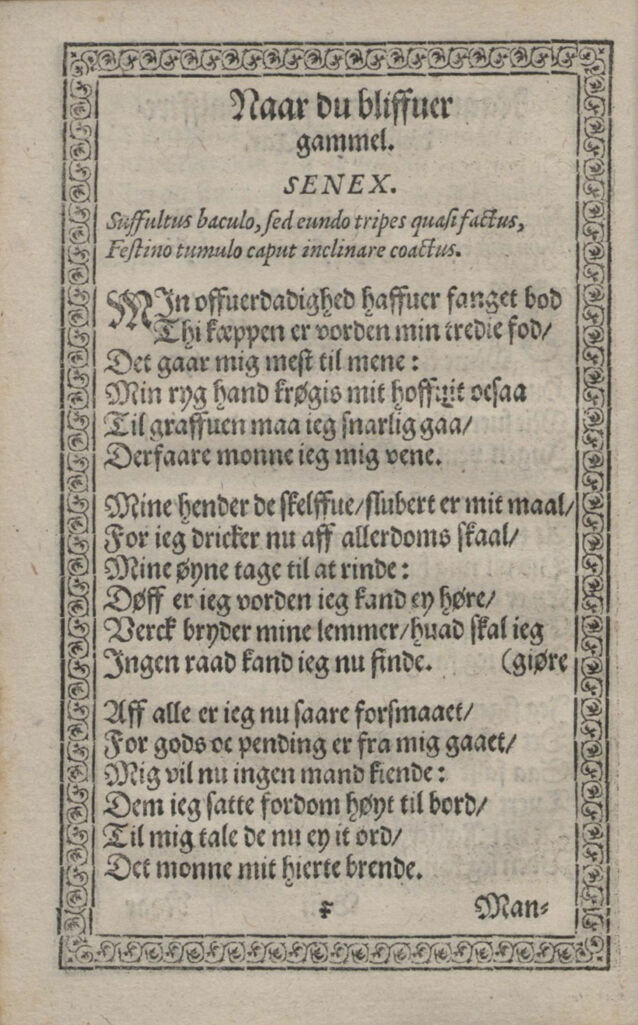 Naar du bliffuer
gammel.
SENEX.
Suffultus baculo, sed eundo tripes quasi factus,
Festino tumulo caput inclinare coactus.
MIn offuerdadighed haffuer fanget bod
Thi kæppen er vorden min tredie fod/
Det gaar mig mest til mene:
Min ryg hand krøgis mit hoffuit ocsaa
Til graffuen maa ieg snarlig gaa/
Derfaare monne ieg mig vene.
Mine hender de skelffue/slubert er mit maal/
For ieg dricker nu aff allerdoms skaal/
Mine øyne tage til at rinde:
Døff er ieg vorden ieg kand ey høre/
Verck bryder mine lemmer/huad skal ieg
Ingen raad kand ieg nu finde. (giøre
Aff alle er ieg nu saare forsmaaet/
For gods oc pending er fra mig gaaet/
Mig vil nu ingen mand kiende:
Dem ieg satte fordom høyt til bord/
Til mig tale de nu ey it ord/
Det monne mit hierte brende.
Man-